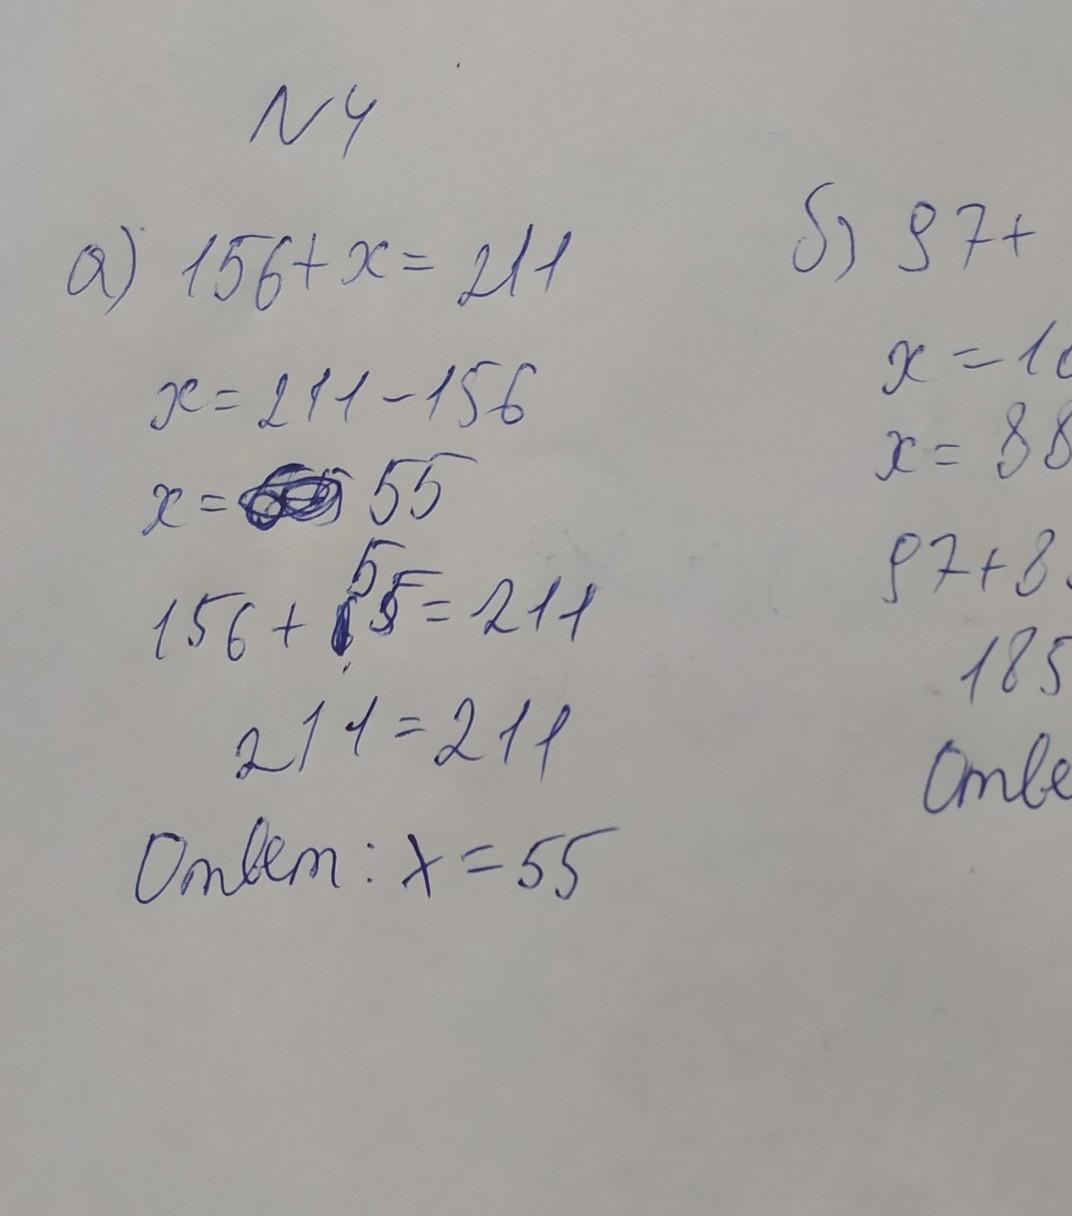 N4
а) 156+x=211
x=211-156
x= 55
156+55=211
211=211
Ответ: x=55
б) 97+
x=1
x=88
97+8
185
Отве